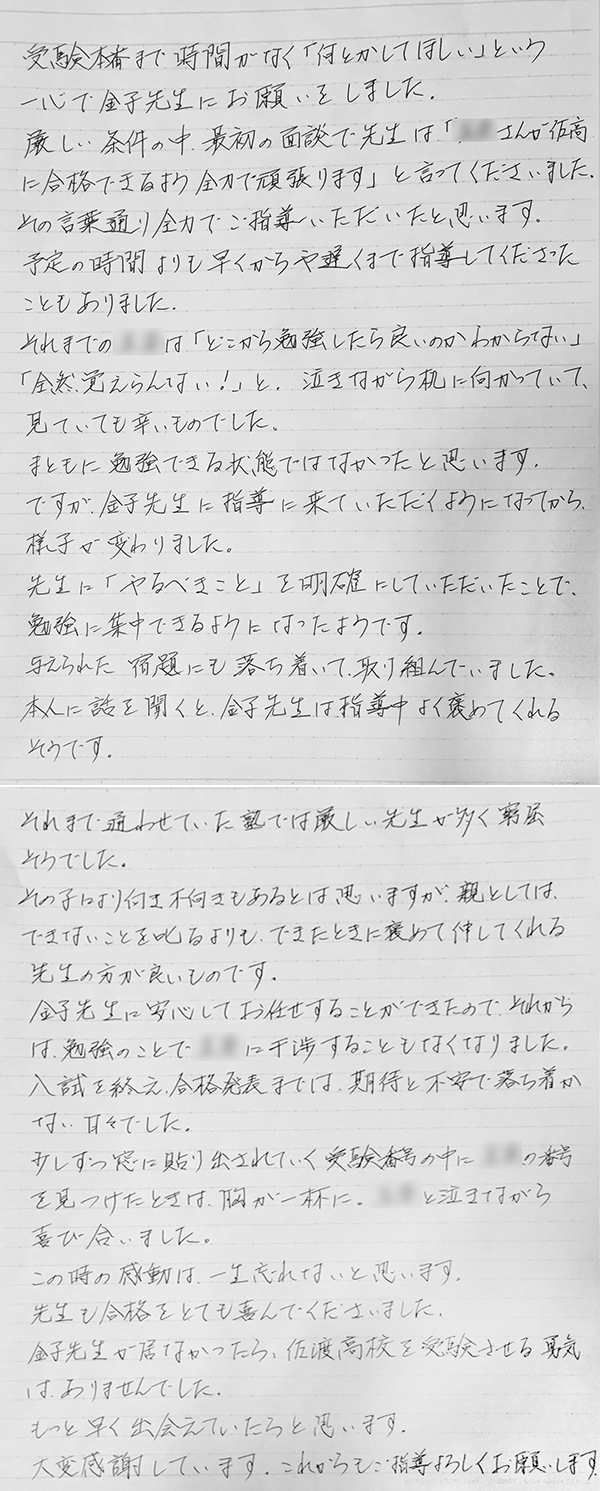 受験本番まで時間がなく「何とかしてほしい」という
一心で金子先生にお願いをしました.
厳しい条件の中、最初の面談で先生は、「さんが佐高
に合格できるよう全力で頑張ります」と言ってくださいました.
その言葉通り全力でご指導いただいたと思います.
予定の時間よりも早くからや遅くまで指導してくださった
こともありました.
それまでのは「どこから勉強したら良いのかわからない」
「全然、覚えらんない!」と、泣きながら机に向かっていて、
見ていても辛いものでした.
まともに勉強できる状態ではなかったと思います.
ですが、金子先生に指導に来ていただくようになってから、
様子が変わりました。
先生に「やるべきこと」を明確にしていただいたことで、
勉強に集中できるようになったようです.
与えられた宿題にも落ち着いて、取り組んでいました。
本人に話を聞くと、金子先生は、指導中よく褒めてくれる
そうです.
それまで通わせていた塾では厳しい先生が多く窮屈
そうでした.
その子により付き不向きもあるとは思いますが、親としては、
できないことを叱るよりも、できたときに褒めて伸してくれる
先生の方が良いものです.
金子先生に安心してお任せすることができたので、それから
は、勉強のことでに干渉することもなくなりました。
入試を終え、合格発表までは、期待と不安で落ち着か
ない日々でした.
少しずつ窓に貼り出されていく受験番号の中にの番号
を見つけたときは、胸が一杯に。と泣きながら
喜び合いました。
この時の感動は、一生忘れないと思います.
先生も合格をとても喜んでくださいました.
金子先生が居なかったら、佐渡高校を受験させる勇気
は、ありませんでした.
もっと早く出会えていたらと思います.
大変感謝しています. これからもご指導よろしくお願いします.